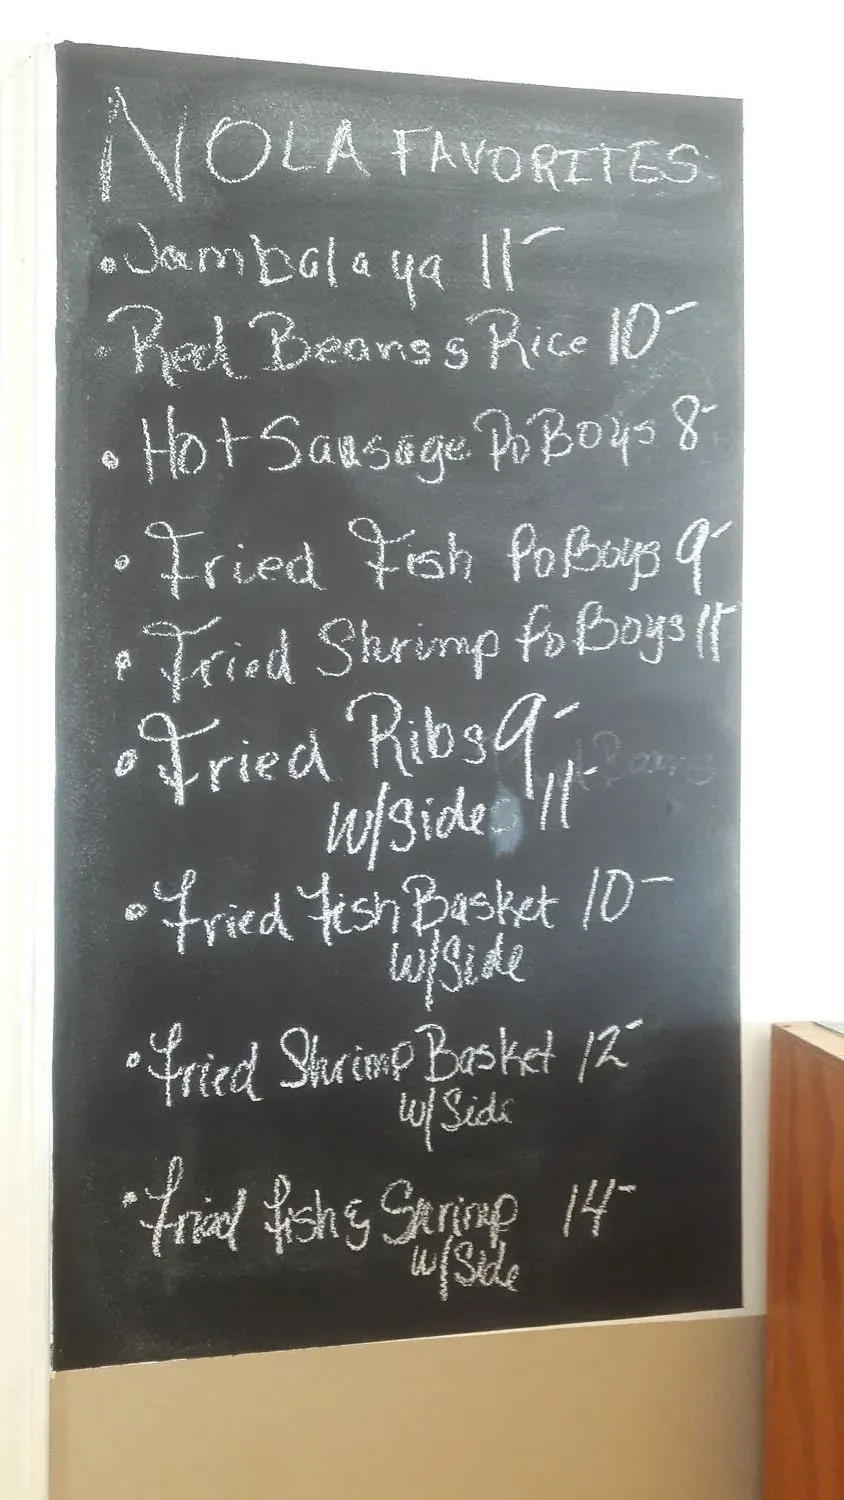 NOLA FAVORITES
• Jambalaya 11-
• Red Beans & Rice 10-
• Hot Sausage Po Boys 8-
• Fried Fish Po Boys 9-
• Fried Shrimp Po Boys 11-
• Fried Ribs 9-
W/Side 11-
• Fried Fish Basket 10-
W/Side
• Fried Shrimp Basket 12-
w/ Side
• Fried Fish & Shrimp 14-
w/Side